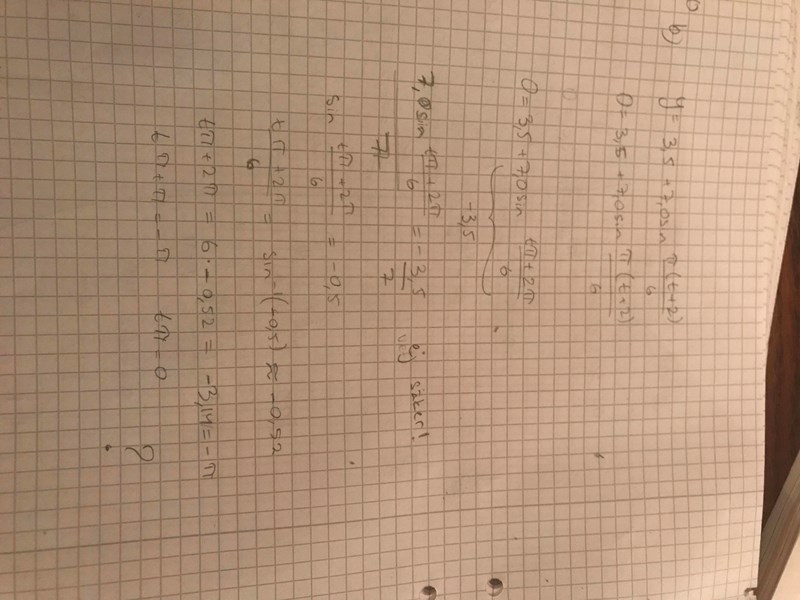 b) y = 3,5 + 7,0 sin π(t+2)/6
0 = 3,5 + 7,0 sin π(t+2)/6
0 = 3,5 + 7,0 sin tπ+2π/6
-3,5
7,0 sin tπ+2π/6 = -3,5/7 ej säker!
7
sin tπ+2π/6 = -0,5
tπ+2π/6 = sin⁻¹(-0,5) ≈ -0,52
tπ+2π = 6·-0,52 = -3,14 = -π
tπ+π = -π tπ = 0
?